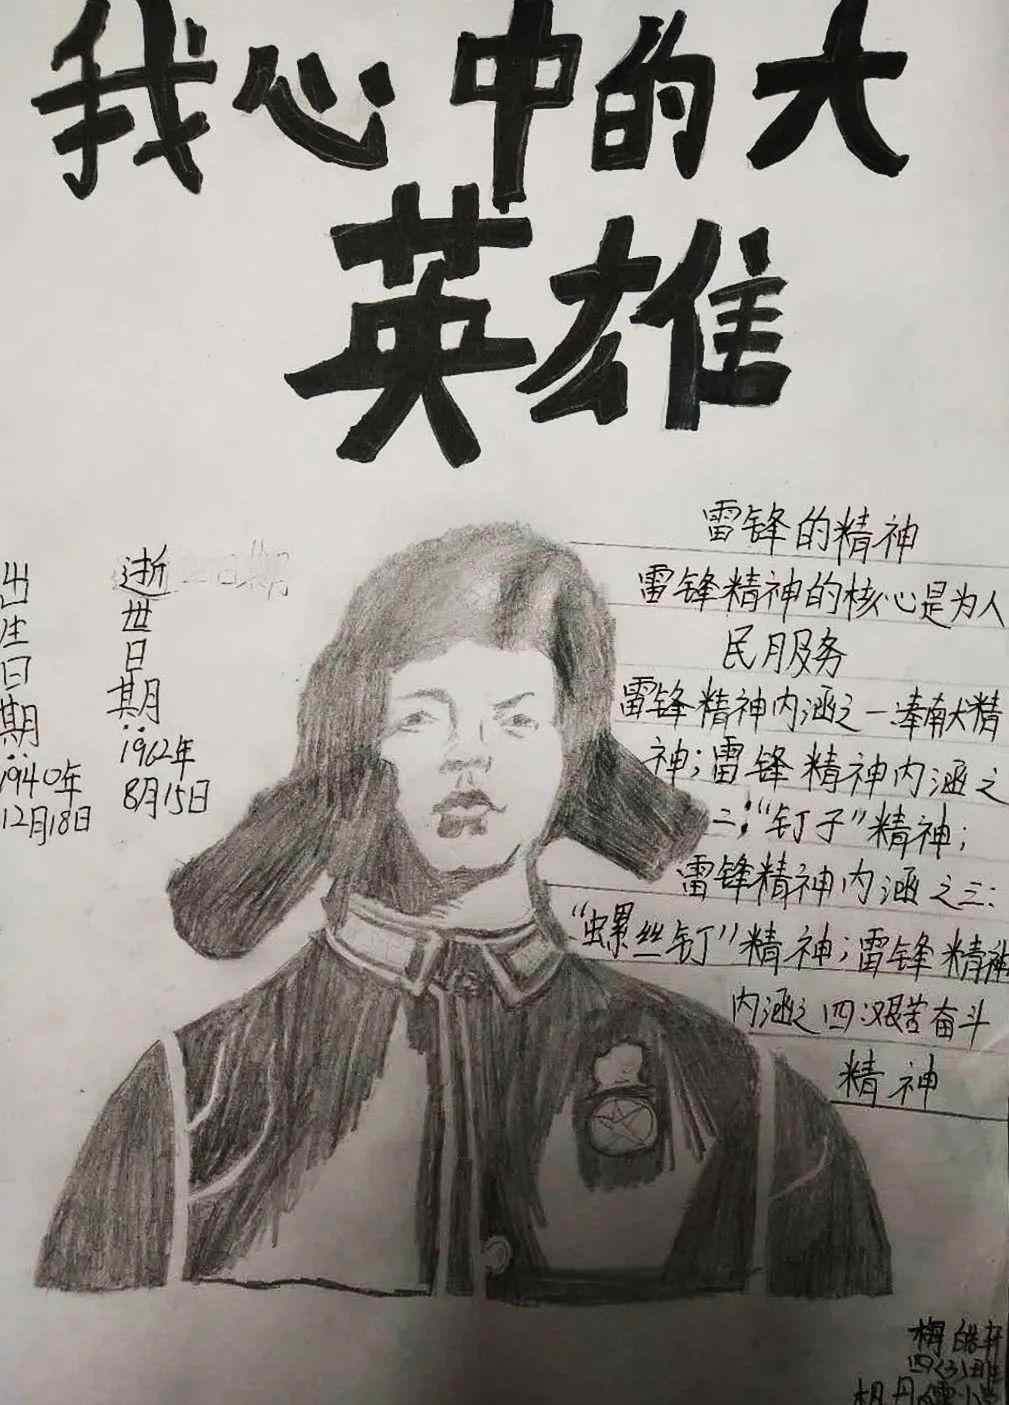 我心中的大
英雄
出生日期:1940年
12月18日
逝世日期:1962年
8月15日
雷锋的精神
雷锋精神的核心是为人
民服务
雷锋精神内涵之一:奉献精
神;雷锋精神内涵之
二:"钉子"精神;
雷锋精神内涵之三:
"螺丝钉"精神;雷锋精神
内涵之四:艰苦奋斗
精神
梅皓轩
四(3)班